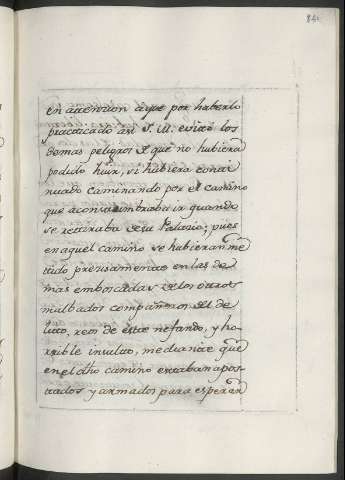 84.
en attencion à que por haberlo
practicado asi S. M. evitó los
demas peligros de que no hubiera
podido huir, si hubiera conti
nuado caminando por el camino
que acostumbraba ir quando
se retiraba de su Palacio; pues
en aquel camino se hubieran me
tido precisamente en las de
mas emboscadas de los otros
malbados compañeros del de
lito, reos de este nefando, y ho
rrible insulto, mediante que
en el dho camino estaban apos
tados y armados para esperar